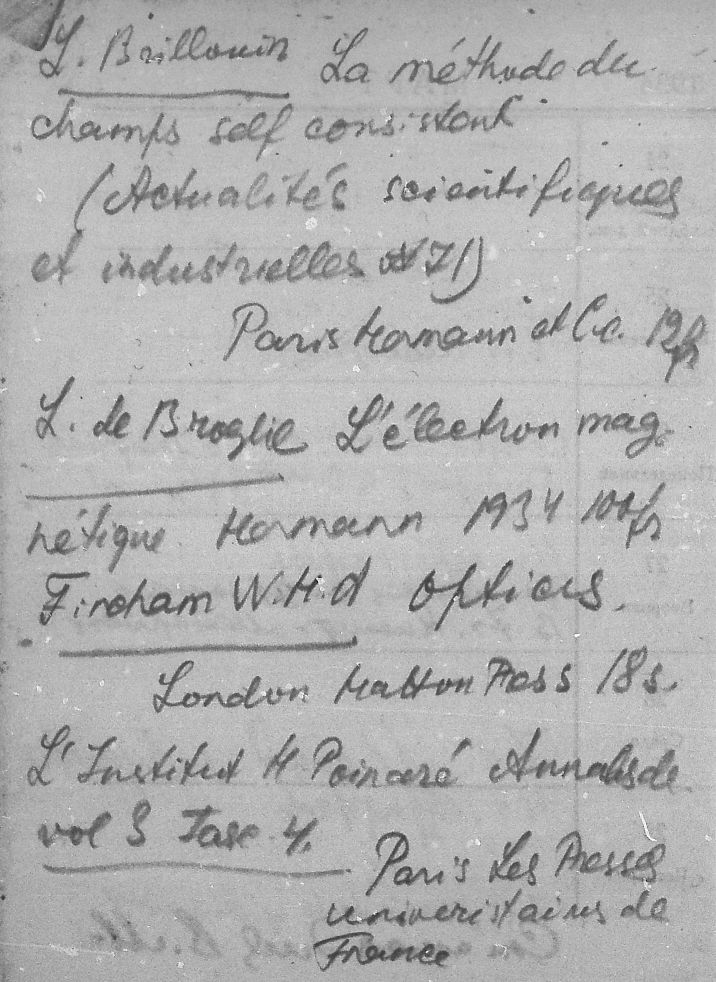 L. Brillouin La méthode du
champs self consistent
(Actualités scientifiques
et industrielles 71)
Paris Hermann et Cie. 12 fr
L. de Broglie L'électron mag-
nétique Hermann 1934 100 fr
Fincham W.H.A Optics.
London Hatton Press 18 s.
L'Institut H Poincaré Annales de
vol 3 Fasc 4.
Paris Les Presses
univeristaires de
France